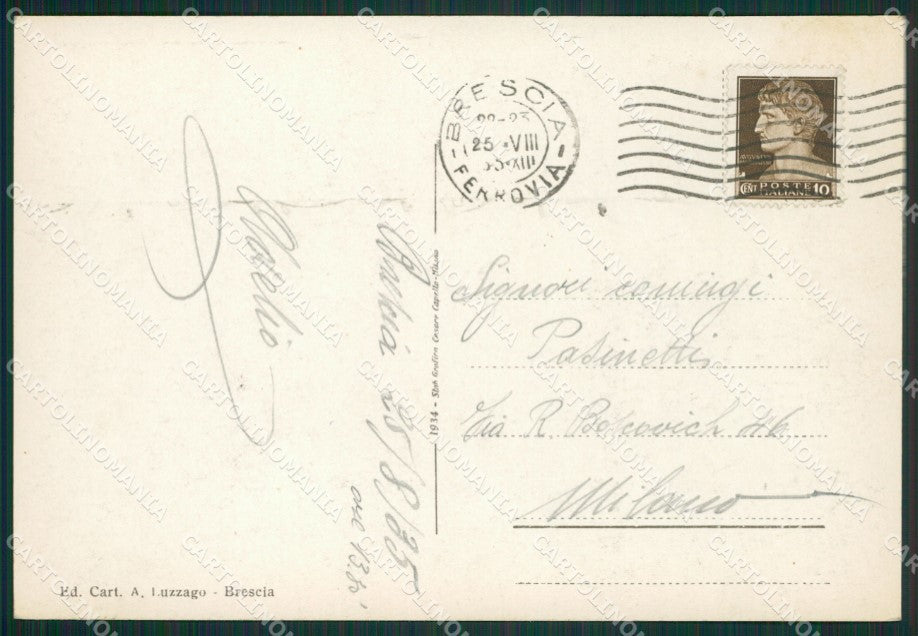 BRESCIA
22-23
25·VIII
35·XIII
FERROVIA
CENT POSTE 10
ITALIANE
Brescia 25/8/35
ore 13.50'
1934 - Stab. Grafico Cesare Capello - Milano
Signori coniugi
Pasinetti
Via R. Boscovich 46
Milano
Ed. Cart. A. Luzzago - Brescia
CARTOLINOMANIA